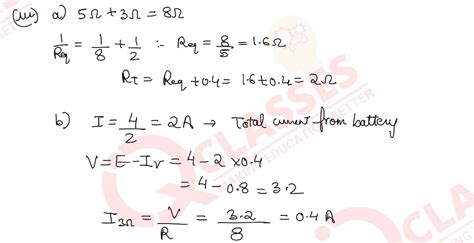 (iii) a) 5Ω + 3Ω = 8Ω
1/Req = 1/8 + 1/2 ∴ Req = 8/5 = 1.6Ω
RT = Req + 0.4 = 1.6 + 0.4 = 2Ω
b) I = 4/2 = 2A → Total current from battery
V = E - Ir = 4 - 2 × 0.4
= 4 - 0.8 = 3.2
I3Ω = V/R = 3.2/8 = 0.4 A
CLASSES
MAKING EDUCATION BETTER